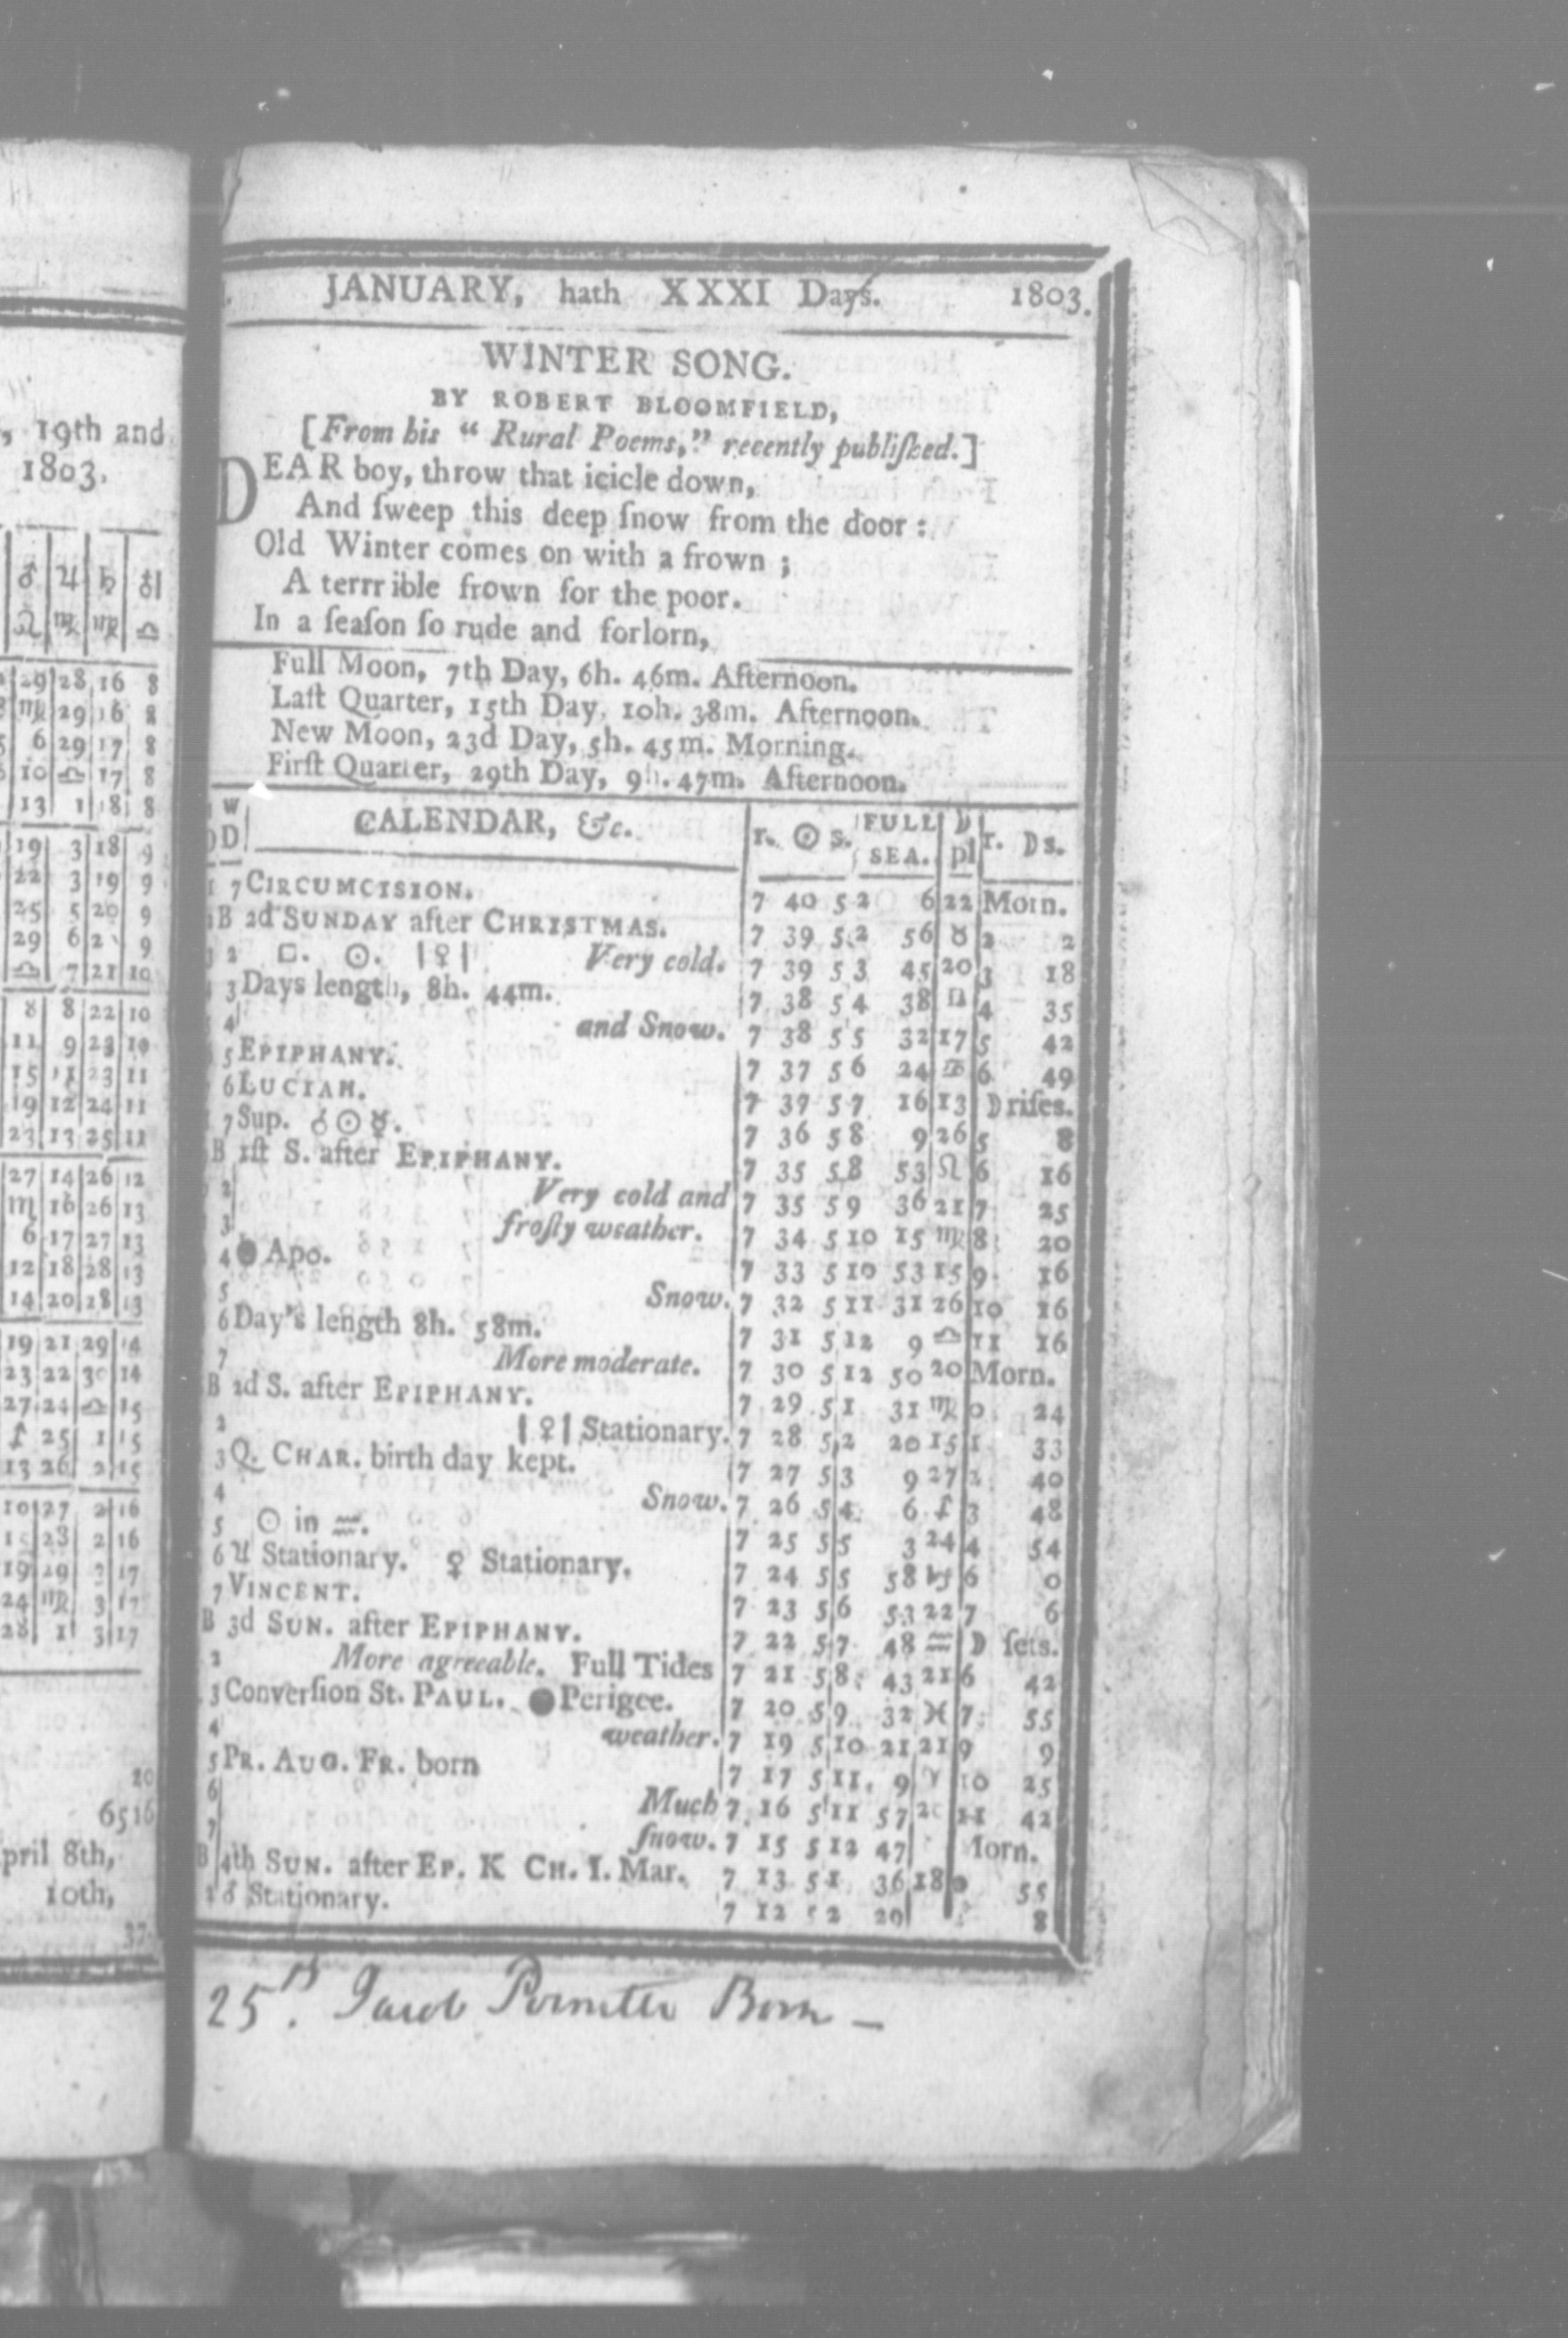 , 19th and
1803.
♂ ♃ ♄ ♅
♌ ♍ ♍ ♎
29 28 16 8
♍ 29 16 8
6 29 17 8
10 ♎ 17 8
13 1 18 8
19 3 18 9
22 3 19 9
25 5 20 9
29 6 9
♎ 7 21 10
8 8 22 10
11 9 23 10
15 11 23 11
19 12 24 11
23 13 25 11
27 14 26 12
♏ 16 26 13
6 17 27 13
12 18 28 13
14 20 28 13
19 21 29 14
23 22 30 14
27 24 ♎ 15
♐ 25 1 15
13 26 2 15
10 27 2 16
15 28 2 16
19 29 2 17
24 ♏ 3 17
28 1 3 17
20
6516
pril 8th,
10th,
37
JANUARY, hath XXXI Days. 1803.
WINTER SONG.
BY ROBERT BLOOMFIELD,
[From his “ Rural Poems,” recently publiſhed.]
DEAR boy, throw that icicle down,
And ſweep this deep ſnow from the door :
Old Winter comes on with a frown ;
A terrrible frown for the poor.
In a ſeaſon ſo rude and forlorn,
Full Moon, 7th Day, 6h. 46m. Afternoon.
Laſt Quarter, 15th Day, 10h. 38m. Afternoon.
New Moon, 23d Day, 5h. 45m. Morning.
Firſt Quarter, 29th Day, 9h. 47m. Afternoon.
W D CALENDAR, &c. r. ☉ s. FULL SEA. ☽ pl r. ☽ s.
1 7 CIRCUMCISION. 7 40 5 2 6 22 Morn.
B 2d SUNDAY after CHRISTMAS. 7 39 5 2 56 ♉ 2 2
3 2 □. ☉. |♀| Very cold. 7 39 5 3 45 20 3 18
3 Days length, 8h. 44m. 7 38 5 4 38 ♊ 4 35
4 and Snow. 7 38 5 5 32 17 5 42
5 EPIPHANY. 7 37 5 6 24 ♋ 6 49
6 LUCIAN. 7 37 5 7 16 13 ☽ riſes.
7 Sup. ☌ ☉ ☿. 7 36 5 8 9 26 5 8
B 1ſt S. after EPIPHANY. 7 35 5 8 53 ♌ 6 16
2 Very cold and 7 35 5 9 36 21 7 25
3 froſty weather. 7 34 5 10 15 ♍ 8 20
4 ● Apo. 7 33 5 10 53 15 9 16
5 Snow. 7 32 5 11 31 26 10 16
6 Day's length 8h. 58m. 7 31 5 12 9 ♎ 11 16
7 More moderate. 7 30 5 12 50 20 Morn.
B 2d S. after EPIPHANY. 7 29 5 1 31 ♏ 0 24
2 |♀| Stationary. 7 28 5 2 20 15 1 33
3 Q. CHAR. birth day kept. 7 27 5 3 9 27 2 40
4 Snow. 7 26 5 4 6 ♐ 3 48
5 ☉ in ♒. 7 25 5 5 3 24 4 54
6 ♃ Stationary. ♀ Stationary. 7 24 5 5 58 ♑ 6 0
7 VINCENT. 7 23 5 6 53 22 7 6
B 3d SUN. after EPIPHANY. 7 22 5 7 48 ♒ ☽ ſets.
2 More agreeable. Full Tides 7 21 5 8 43 21 6 42
3 Converſion St. PAUL. ● Perigee. 7 20 5 9 32 ♓ 7 55
4 weather. 7 19 5 10 21 21 9 9
5 PR. AUG. FR. born 7 17 5 11 9 ♈ 10 25
6 Much 7 16 5 11 57 11 42
7 ſnow. 7 15 5 12 47 Morn.
B 4th SUN. after EP. K CH. I. Mar. 7 13 5 1 36 18 0 55
2 ♂ Stationary. 7 12 5 2 29 8
25th. Jacob Born —